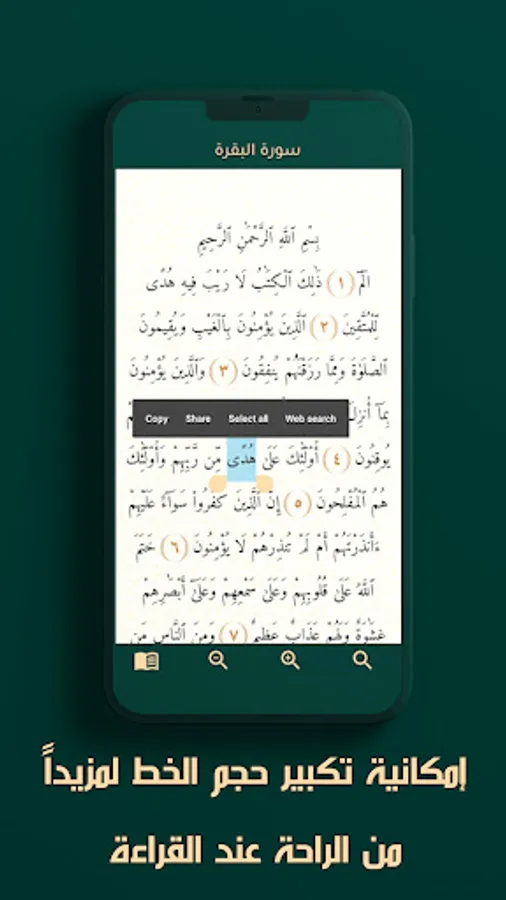 سورة البقرة
بِسْمِ ٱللَّهِ ٱلرَّحْمَٰنِ ٱلرَّحِيمِ
الٓمٓ (١) ذَٰلِكَ ٱلْكِتَٰبُ لَا رَيْبَ فِيهِ هُدًى
لِّلْمُتَّقِينَ (٢) ٱلَّذِينَ يُؤْمِنُونَ بِٱلْغَيْبِ وَيُقِيمُونَ
ٱلصَّلَوٰةَ وَمِمَّا رَزَقْنَٰهُمْ يُنفِقُونَ (٣) وَٱلَّذِينَ يُؤْمِنُونَ
بِمَآ أُنزِلَ
Copy Share Select all Web search
يُوقِنُونَ (٤) أُو۟لَٰٓئِكَ عَلَىٰ هُدًى مِّن رَّبِّهِمْ وَأُو۟لَٰٓئِكَ
هُمُ ٱلْمُفْلِحُونَ (٥) إِنَّ ٱلَّذِينَ كَفَرُوا۟ سَوَآءٌ عَلَيْهِمْ
ءَأَنذَرْتَهُمْ أَمْ لَمْ تُنذِرْهُمْ لَا يُؤْمِنُونَ (٦) خَتَمَ
ٱللَّهُ عَلَىٰ قُلُوبِهِمْ وَعَلَىٰ سَمْعِهِمْ وَعَلَىٰٓ أَبْصَٰرِهِمْ
غِشَٰوَةٌ وَلَهُمْ عَذَابٌ عَظِيمٌ (٧) وَمِنَ ٱلنَّاسِ مَن
إمكانية تكبير حجم الخط لمزيداً
من الراحة عند القراءة